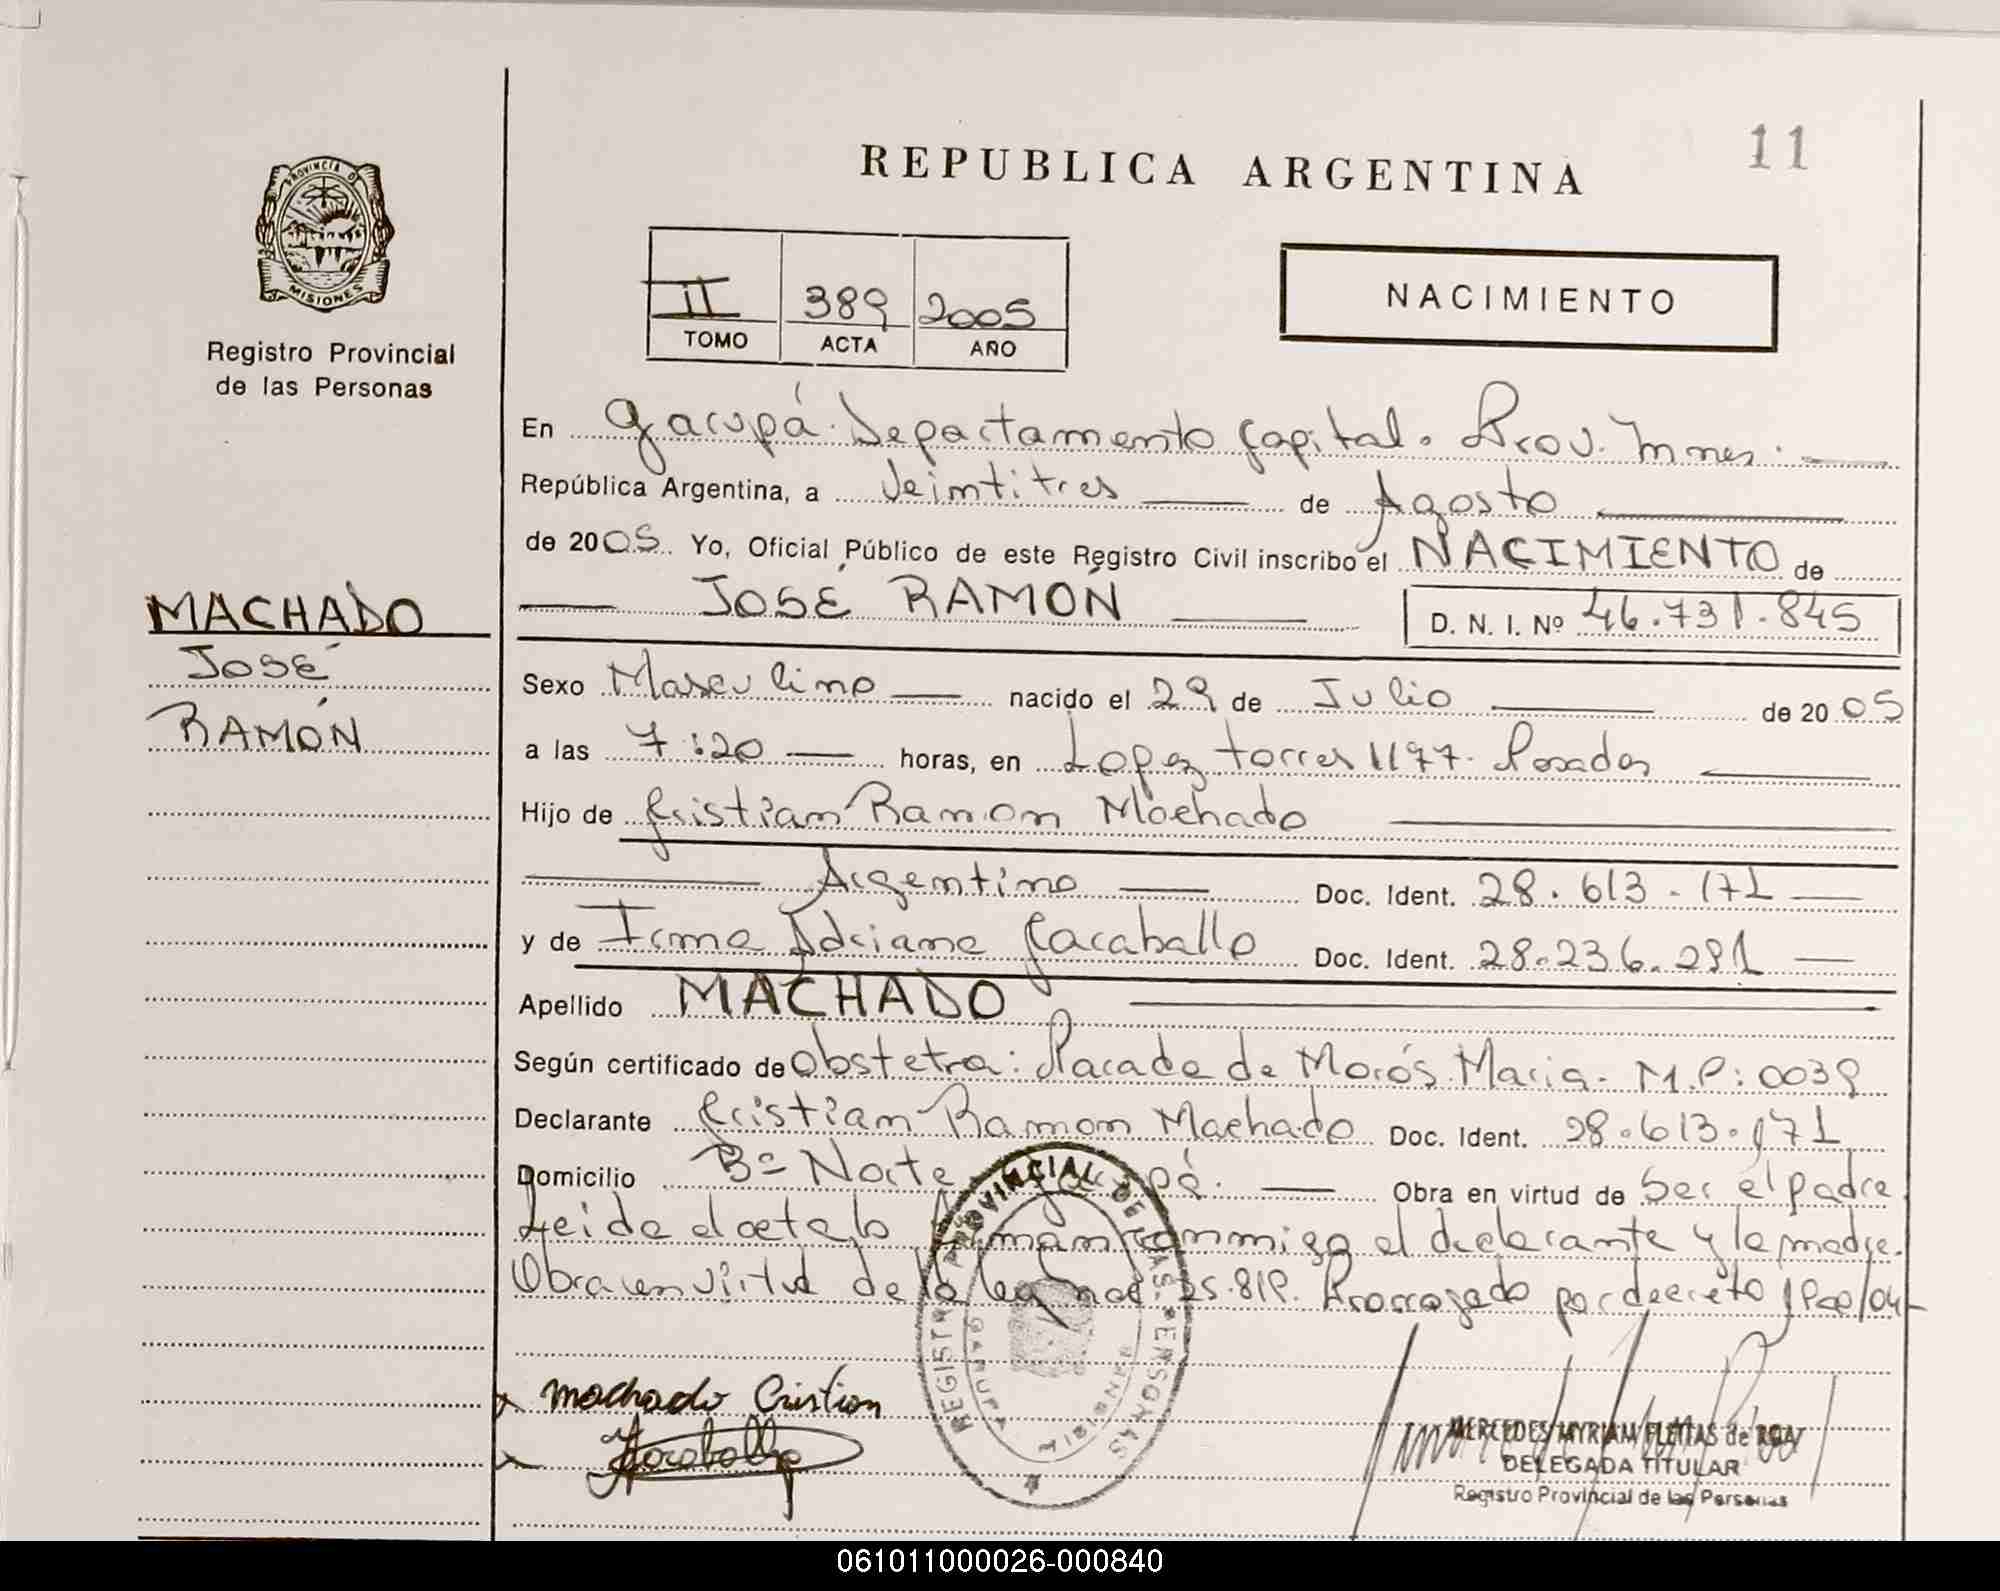 11
REPUBLICA ARGENTINA
PROVINCIA D MISIONES
Registro Provincial
de las Personas
II 389 2005
TOMO ACTA AÑO
NACIMIENTO
En Garupá. Departamento Capital. Prov. Mnes.
República Argentina, a Veintitres de Agosto
de 2005 Yo, Oficial Público de este Registro Civil inscribo el NACIMIENTO de
JOSÉ RAMÓN D. N. I. Nº 46.731.845
MACHADO
JOSÉ
RAMÓN
Sexo Masculino nacido el 29 de Julio de 2005
a las 7:20 horas, en Lopez torres 1177. Posadas
Hijo de Cristian Ramon Machado
Argentino Doc. Ident. 28.613.171
y de Irma Adriana Caraballo Doc. Ident. 28.236.291
Apellido MACHADO
Según certificado de Obstetra: de Morós Maria. M.P: 0039
Declarante Cristian Ramon Machado Doc. Ident. 28.613.171
Domicilio Bº Norte Obra en virtud de Ser el padre
Leida el acta la firman conmigo el declarante y la madre.
Obra en virtud de la ley nac. 25.819. Prorrogado por decreto
Machado Cristian
Caraballo
REGISTRO PROVINCIAL DE LAS PERSONAS
MERCEDES MYRIAM FLEITAS de
DELEGADA TITULAR
Registro Provincial de las Personas
061011000026-000840